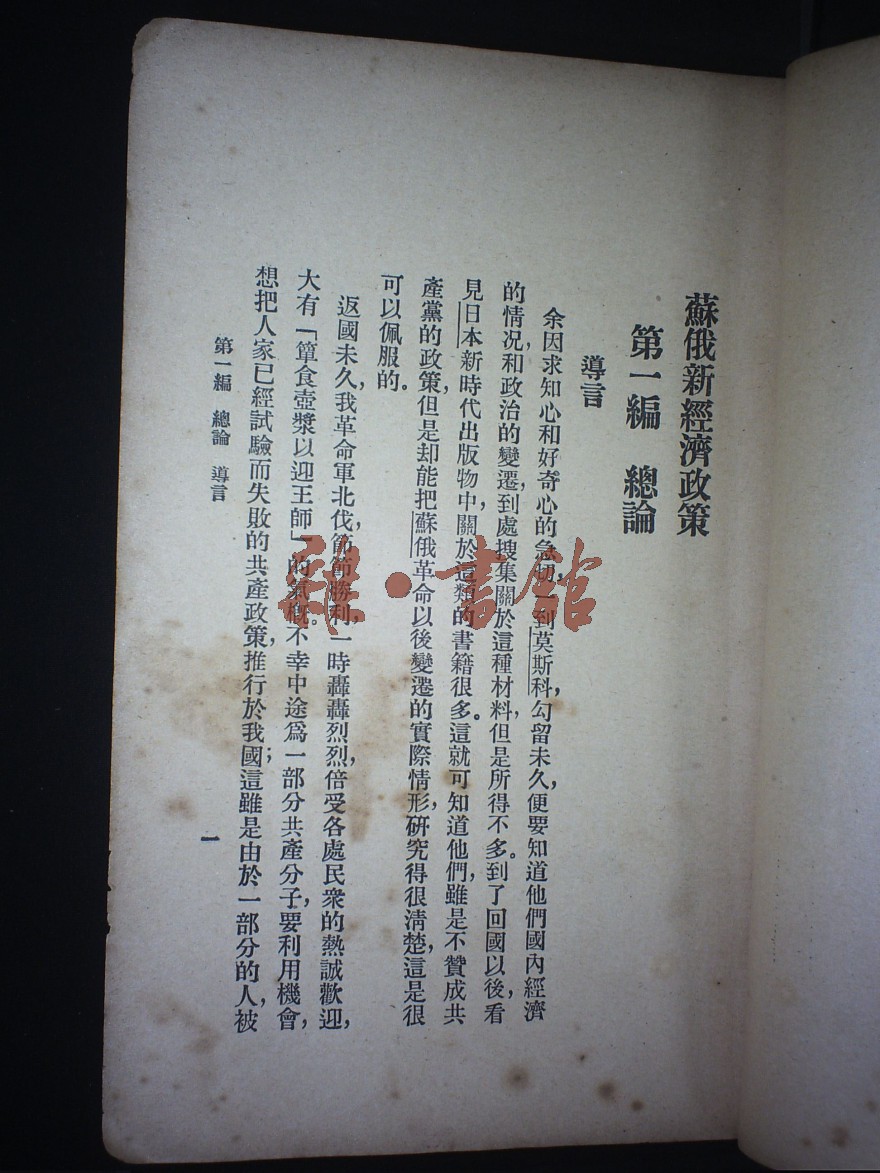 蘇俄新經濟政策
第一編　總論
導言
余因求知心和好奇心的急切，一到莫斯科，勾留未久，便要知道他們國內經濟
的情況，和政治的變遷，到處搜集關於這種材料，但是所得不多。到了回國以後，看
見日本新時代出版物中，關於這類的書籍很多。這就可知道他們，雖是不贊成共
產黨的政策，但是却能把蘇俄革命以後變遷的實際情形，研究得很清楚，這是很
可以佩服的。
返國未久，我革命軍北伐，節節勝利，一時轟轟烈烈，倍受各處民衆的熱誠歡迎，
大有「簞食壺漿以迎王師」的氣概。不幸中途爲一部分共產分子，要利用機會，
想把人家已經試驗而失敗的共產政策，推行於我國；這雖是由於一部分的人，被
第一編　總論　導言
一
雜·書館